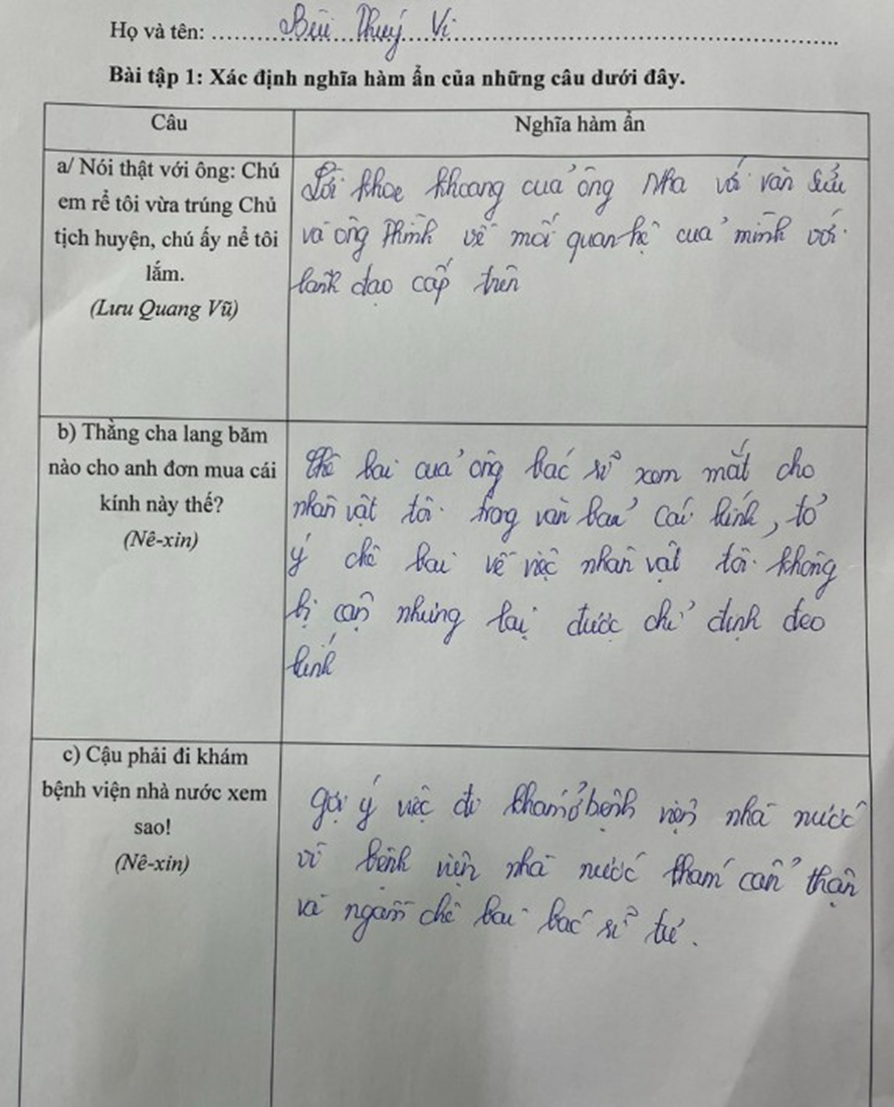 Họ và tên: Bùi Thuý Vi
Bài tập 1: Xác định nghĩa hàm ẩn của những câu dưới đây.
Câu
Nghĩa hàm ẩn
a/ Nói thật với ông: Chú
em rể tôi vừa trúng Chủ
tịch huyện, chú ấy nể tôi
lắm.
(Lưu Quang Vũ)
Lời khoe khoang của ông Nha với văn Sửu
và ông Thình về mối quan hệ của mình với
lãnh đạo cấp trên
b) Thằng cha lang băm
nào cho anh đơn mua cái
kính này thế?
(Nê-xin)
Chê bai của ông bác sĩ xem mắt cho
nhân vật tôi trong văn bản Cái kính, tỏ
ý chê bai về việc nhân vật tôi không
bị cận nhưng lại được chỉ định đeo
kính
c) Cậu phải đi khám
bệnh viện nhà nước xem
sao!
(Nê-xin)
gợi ý việc đi khám ở bệnh viện nhà nước
vì bệnh viện nhà nước khám cẩn thận
và ngầm chê bai bác sĩ tư.